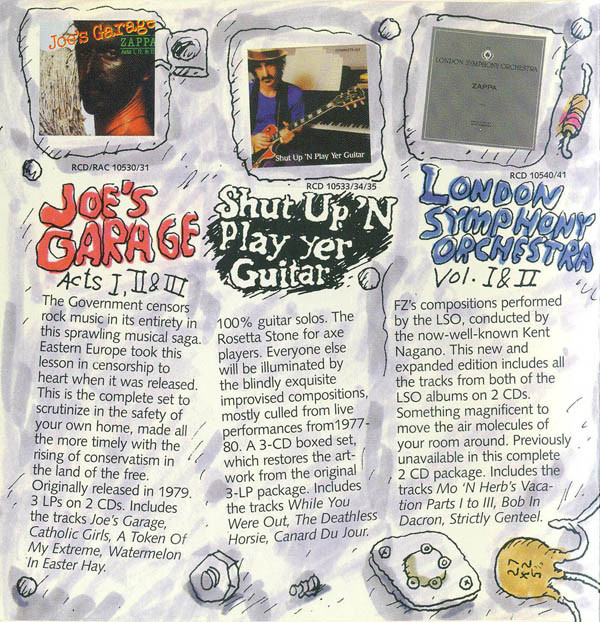 Joe's Garage
ZAPPA
RCD/RAC 10530/31
JOE'S
GARAGE
Acts I, II & III
The Government censors
rock music in its entirety in
this sprawling musical saga.
Eastern Europe took this
lesson in censorship to
heart when it was released.
This is the complete set to
scrutinize in the safety of
your own home, made all
the more timely with the
rising of conservatism in
the land of the free.
Originally released in 1979.
3 LPs on 2 CDs. Includes
the tracks Joe's Garage,
Catholic Girls, A Token Of
My Extreme, Watermelon
In Easter Hay.
Shut Up 'N Play Yer Guitar
RCD 10533/34/35
Shut Up 'N
Play yer
Guitar
100% guitar solos. The
Rosetta Stone for axe
players. Everyone else
will be illuminated by
the blindly exquisite
improvised compositions,
mostly culled from live
performances from1977-
80. A 3-CD boxed set,
which restores the art-
work from the original
3-LP package. Includes
the tracks While You
Were Out, The Deathless
Horsie, Canard Du Jour.
LONDON SYMPHONY ORCHESTRA
ZAPPA
RCD 10540/41
LONDON
SYMPHONY
ORCHESTRA
Vol. I & II
FZ's compositions performed
by the LSO, conducted by
the now-well-known Kent
Nagano. This new and
expanded edition includes all
the tracks from both of the
LSO albums on 2 CDs.
Something magnificent to
move the air molecules of
your room around. Previously
unavailable in this complete
2 CD package. Includes the
tracks Mo 'N Herb's Vaca-
tion Parts I to III, Bob In
Dacron, Strictly Genteel.